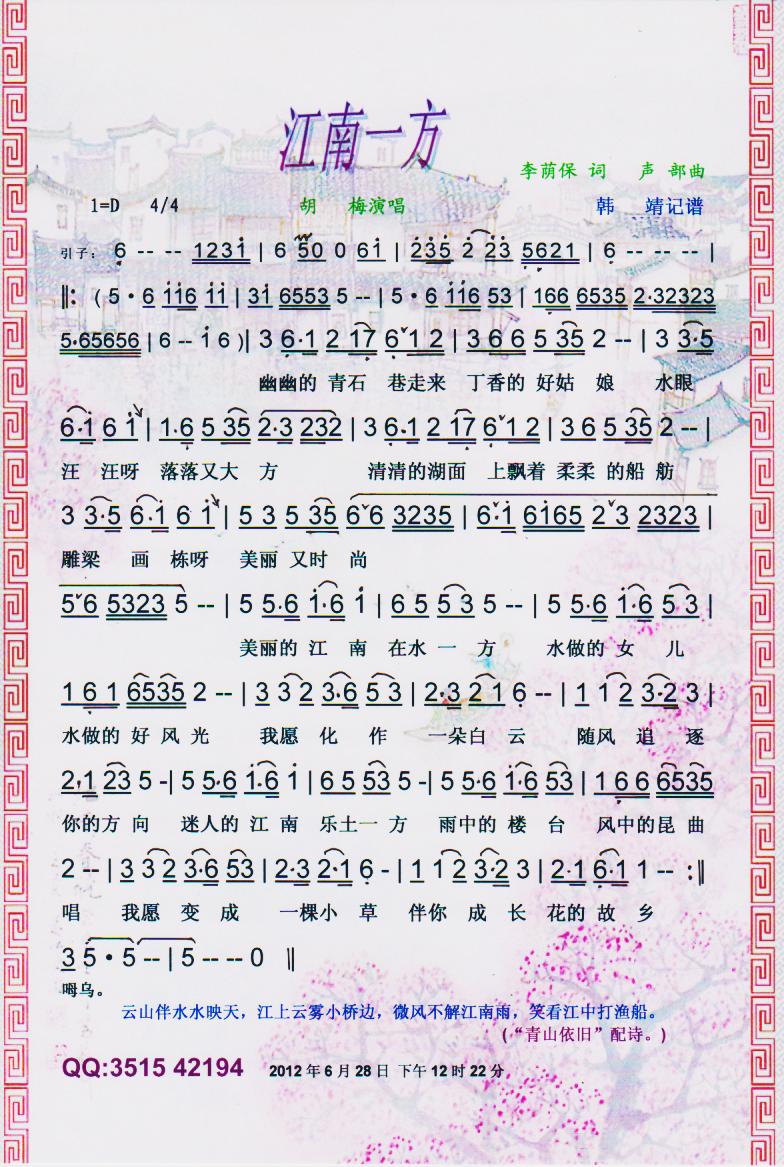 江南一方
李荫保 词 声 部曲
1=D 4/4 胡 梅演唱 韩 靖记谱
引子: 6 -- -- 1231 | 6 50 0 61 | 235 2 23 5621 | 6 -- -- -- |
‖: ( 5·6 116 11 | 31 6553 5 -- | 5·6 116 53 | 166 6535 2·32323
5·65656 | 6 -- 1 6 )| 3 6·1 2 17 6ˇ1 2 | 3 6 6 5 35 2 -- | 3 3·5
幽幽的 青石 巷走来 丁香的 好姑 娘 水眼
6·1 6 1 | 1·6 5 35 2·3 232 | 3 6·1 2 17 6ˇ1 2 | 3 6 5 35 2 -- |
汪 汪呀 落落又大 方 清清的湖面 上飘着 柔柔 的船 舫
3 3·5 6·1 6 1 | 5 3 5 35 6ˇ6 3235 | 6ˇ1 6165 2ˇ3 2323 |
雕梁 画 栋呀 美丽 又时 尚
5ˇ6 5323 5 -- | 5 5·6 1·6 1 | 6 5 5 3 5 -- | 5 5·6 1·6 5 3 |
美丽的 江 南 在水 一 方 水做的 女 儿
1 6 1 6535 2 -- | 3 3 2 3·6 5 3 | 2·3 2 1 6 -- | 1 1 2 3·2 3 |
水做的 好 风 光 我愿 化 作 一朵白 云 随风 追 逐
2·1 23 5 -| 5 5·6 1·6 1 | 6 5 53 5 -| 5 5·6 1·6 53 | 1 6 6 6535
你的方 向 迷人的 江 南 乐土一 方 雨中的 楼 台 风中的昆 曲
2 -- | 3 3 2 3·6 53 | 2·3 2·1 6 - | 1 1 2 3·2 3 | 2·1 6·1 1 -- :‖
唱 我愿 变 成 一棵小 草 伴你 成 长 花的 故 乡
3 5 · 5 -- | 5 -- -- 0 ‖
呣乌。
云山伴水水映天，江上云雾小桥边，微风不解江南雨，笑看江中打渔船。
(“青山依旧”配诗。)
QQ:3515 42194 2012 年 6 月 28 日 下午 12 时 22 分